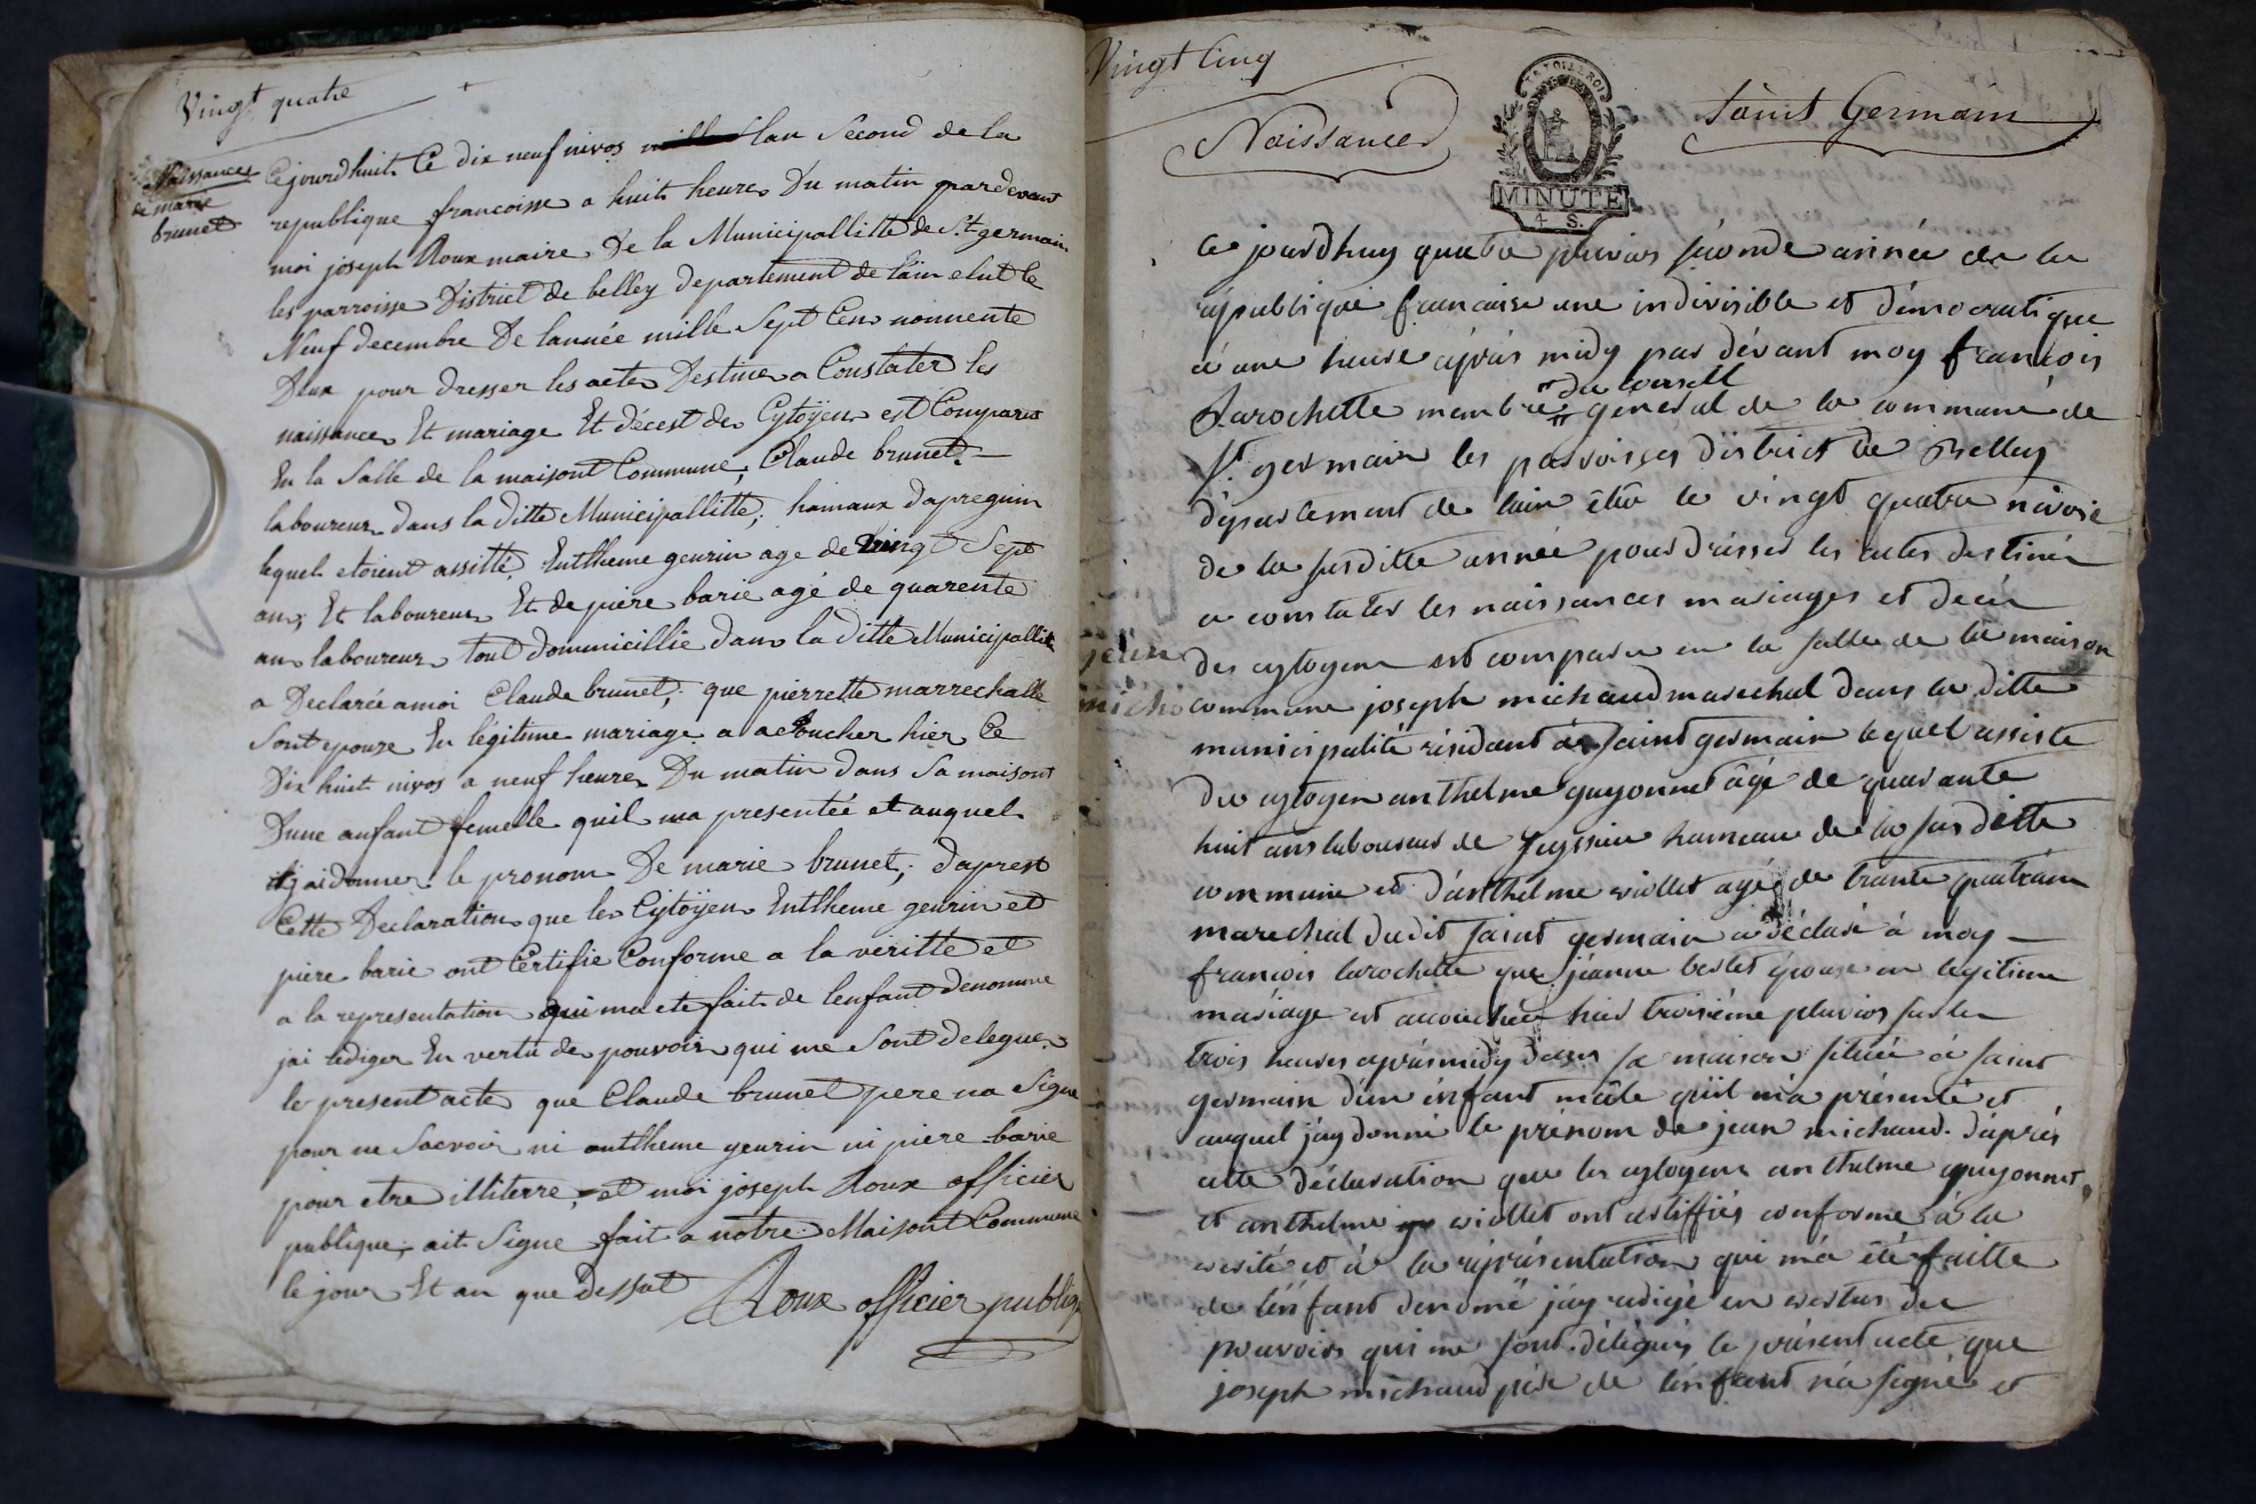 Vingt quatre
Naissance
de marie
brunet
Cejourdhuit Ce dix neuf nivos lan Second de la
republique francoisse a huit heures Du matin pardevant
moi joseph Roux maire De la Municipallitté de S.t germain
les parroisse District de belley departement de lain elut le
Neuf decembre De lannée mille Sept Cens nonnente
Deux pour dresser les actes Destines a Constater les
naissances Et mariage Et décest des Cytoÿens est Comparus
En la Salle de la maisont Commune, Claude brunet
laboureur dans la ditte Municipallitté, hamaux dapreguin
lequel etoient assitté, Entlheme geurin age de Vingt Sept
ans, Et laboureur Et de piere barie agé de quarente
ans laboureur tout dommicillié dans la ditte Municipallité
a Declarée a moi Claude brunet, que pierrette marrechalle
Sont epouze En légitime mariage a acoucher hier Ce
Dix huit nivos a neuf heures Du matin dans Sa maisont
Dune anfant femelle quil ma presentée et auquel
jai donner le pronom De marie brunet, daprest
Cette Declaration que les Cijtoÿens Entlheme geurin et
piere barie ont Certifie Conforme a la veritté et
a la representation qui ma ete fait de lenfant denomme
jai rediger En vertu des pouvoirs qui me Sont delegues
le present acte que Claude brunet pere na Signe
pour ne Scavoir ni antlheme geurin ni piere barie
pour etre illiterre, et moi joseph Roux officier
publique, ait Signe fait a notre Maisont Commune
le jour Et an que dessut
Roux officier publiq
Vingt Cinq
Naissances
LA LOI & LE ROI
MINUTE
4 S.
Saint Germain
ce jourdhuy quatre pluvios séconde année de la
république francaise une indivisible et démocratique
à une heure aprés midy par dévant moy francois
Larochette membre général de la commune de
du conseill
St. germain les parroisses district de Belley
département de lain élu le vingt quatre nivose
de la susditte année pour drésser les actes destinés
a constater les naissances mariages et decés
des cytoyens est comparu en la salle de la maison
jean
micho
commune joseph michaud marechal dans la ditte
municipalité résidant à saint germain lequel assisté
du cytoyen anthelme guyonnet âgé de quarante
huit ans laboureur de hameau de la susditte
commune et d'anthelme viollet agé de trante quatre ans
marechal dudit saint germain a déclaré à moy
francois larochette que jeanne épouse en legitime
mariage est accouchée hier troisiéme pluvios sur les
trois heures aprésmidy dans sa maison située à saint
germain d'un énfant mâle qu'il m'a présenté et
auquel j'ay donné le prénom de jean michaud. d'aprés
cette déclaration que les cytoyens anthelme guyonnet
et anthelme viollet ont certiffiés conforme à la
verité et à la réprésentation qui m'a été faitte
de l'énfant denomé j'ay redigé en vertus des
pouvoirs qui me sont délégués le présent acte que
joseph michaud pére de l'énfant n'a signé et